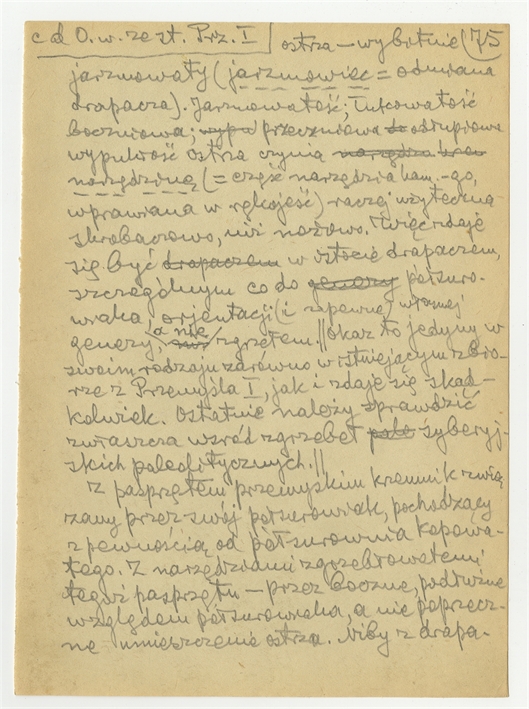 c d O. w. ze st. Prz. I ostrza – wybitnie (75
jarzmowaty (jarzmowiec = odmiana
drapacza). Jarzmowatość; łukowatość
boczniowa; wypu przeczniowa do odłupiowa
wypukłość ostrza czynią narzędzie
narzędzinę (= część narzędzia kam.-go,
wprawiana w rękojeść) raczej użyteczną
skrobaczowo, niż nożowo. Więc zdaje
się być drapaczem w istocie drapaczem,
szczególnym co do genezy półsuro-
wiaka, orjentacji (i zapewne) własnej
genezy, a nie zgrzebłem. || Okaz to jedyny w
swoim rodzaju zarówno w istniejącym zbio-
rze z Przemyśla I, jak i zdaje się skąd-
kolwiek. Ostatnie należy sprawdzić
zwłaszcza wśród zgrzebeł pale syberyj-
skich paleolitycznych. ||
Z pasprzętem przemyskim krzemnik zwią
zany przez swój półsurowiak, pochodzący
z pewnością od półsurownia kopowa-
tego. Z narzędziami zgrzebłowatemi
tegoż pasprzętu – przez boczne, podłużne
względem półsurowiaka, a nie poprzecz-
ne umieszczenie ostrza. Niby z drapa-